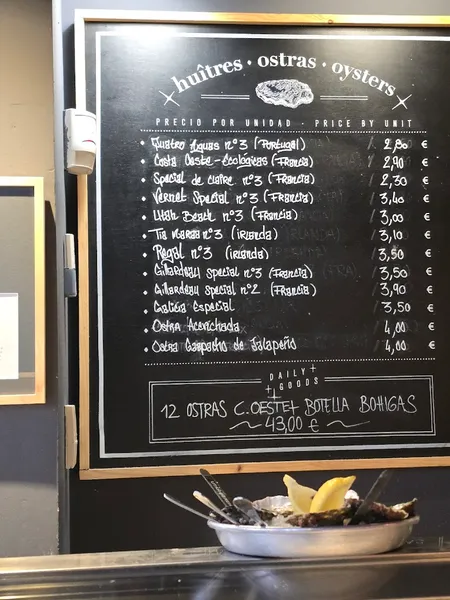 huîtres · ostras · oysters
PRECIO POR UNIDAD - PRICE BY UNIT
• Quatro Aguas nº3 (Portugal) / 2,80 €
• Costa Oeste-Ecológicas (Francia) / 2,90 €
• Special de Claire nº3 (Francia) / 2,30 €
• Vernet Special nº3 (Francia) / 3,40 €
• Utah Beach nº3 (Francia) / 3,00 €
• Tia Maraa nº3 (Irlanda) / 3,10 €
• Regal nº3 (Irlanda) / 3,50 €
• Gillardeau Special nº3 (Francia) / 3,50 €
• Gillardeau Special nº2 (Francia) / 3,90 €
• Galicia Especial 3,50 €
• Ostra Acevichada / 4,00 €
• Ostra Gazpacho de Jalapeño / 4,00 €
DAILY
GOODS
12 OSTRAS C.OESTE + BOTELLA BOHIGAS
~ 43,00 € ~